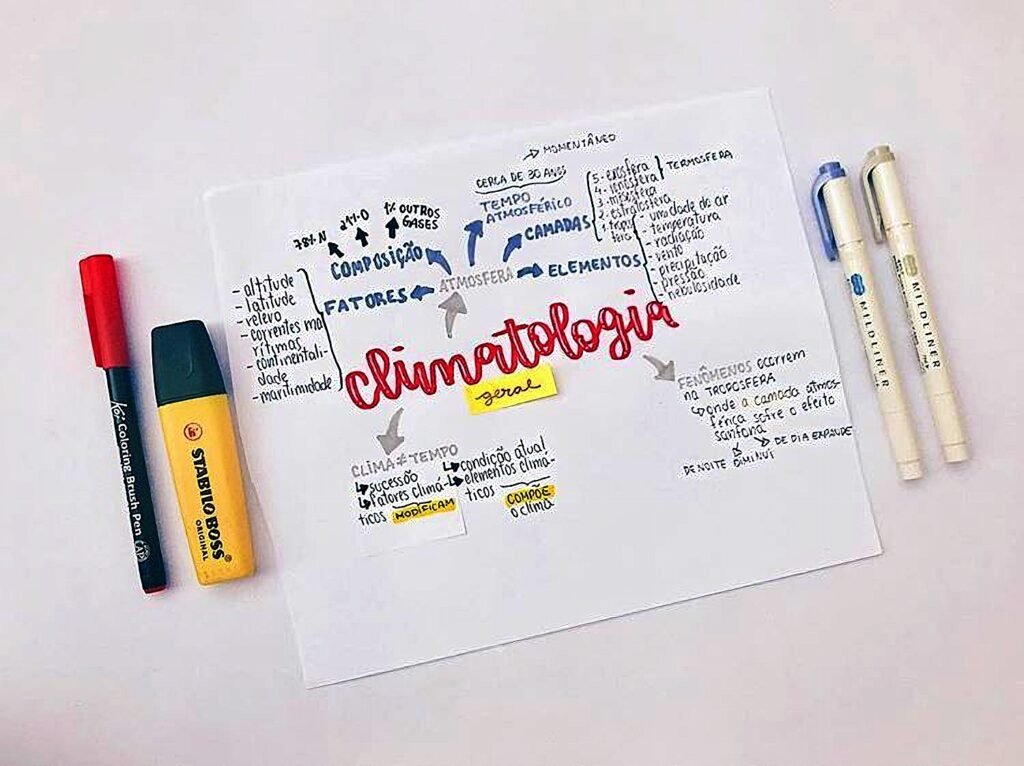 → MOMENTÂNEO
CERCA DE 30 ANOS
TEMPO
ATMOSFÉRICO
5- exosfera
4- ionosfera
3- mesosfera
2- estratosfera
1- tropos
fera
TERMOSFERA
CAMADAS
78% N
21% O
1% OUTROS
GASES
COMPOSIÇÃO
ATMOSFERA
ELEMENTOS
- umidade do ar
- temperatura
- radiação
- vento
- precipitação
- pressão
- nebulosidade
FATORES
- altitude
- latitude
- relevo
- correntes ma
rítimas
- continentali-
dade
- maritimidade
climatologia
geral
FENÔMENOS ocorrem
na TROPOSFERA
↳ onde a camada atmos-
férica sofre o efeito
sanfona
→ DE DIA EXPANDE
DE NOITE DIMINUI
CLIMA ≠ TEMPO
↳ sucessão
↳ fatores climá-
ticos MODIFICAM
↳ condição atual,
↳ elementos climá-
ticos COMPÕE
o clima
Koi Coloring Brush Pen
STABILO BOSS
ORIGINAL
MILDLINER
MILDLINER